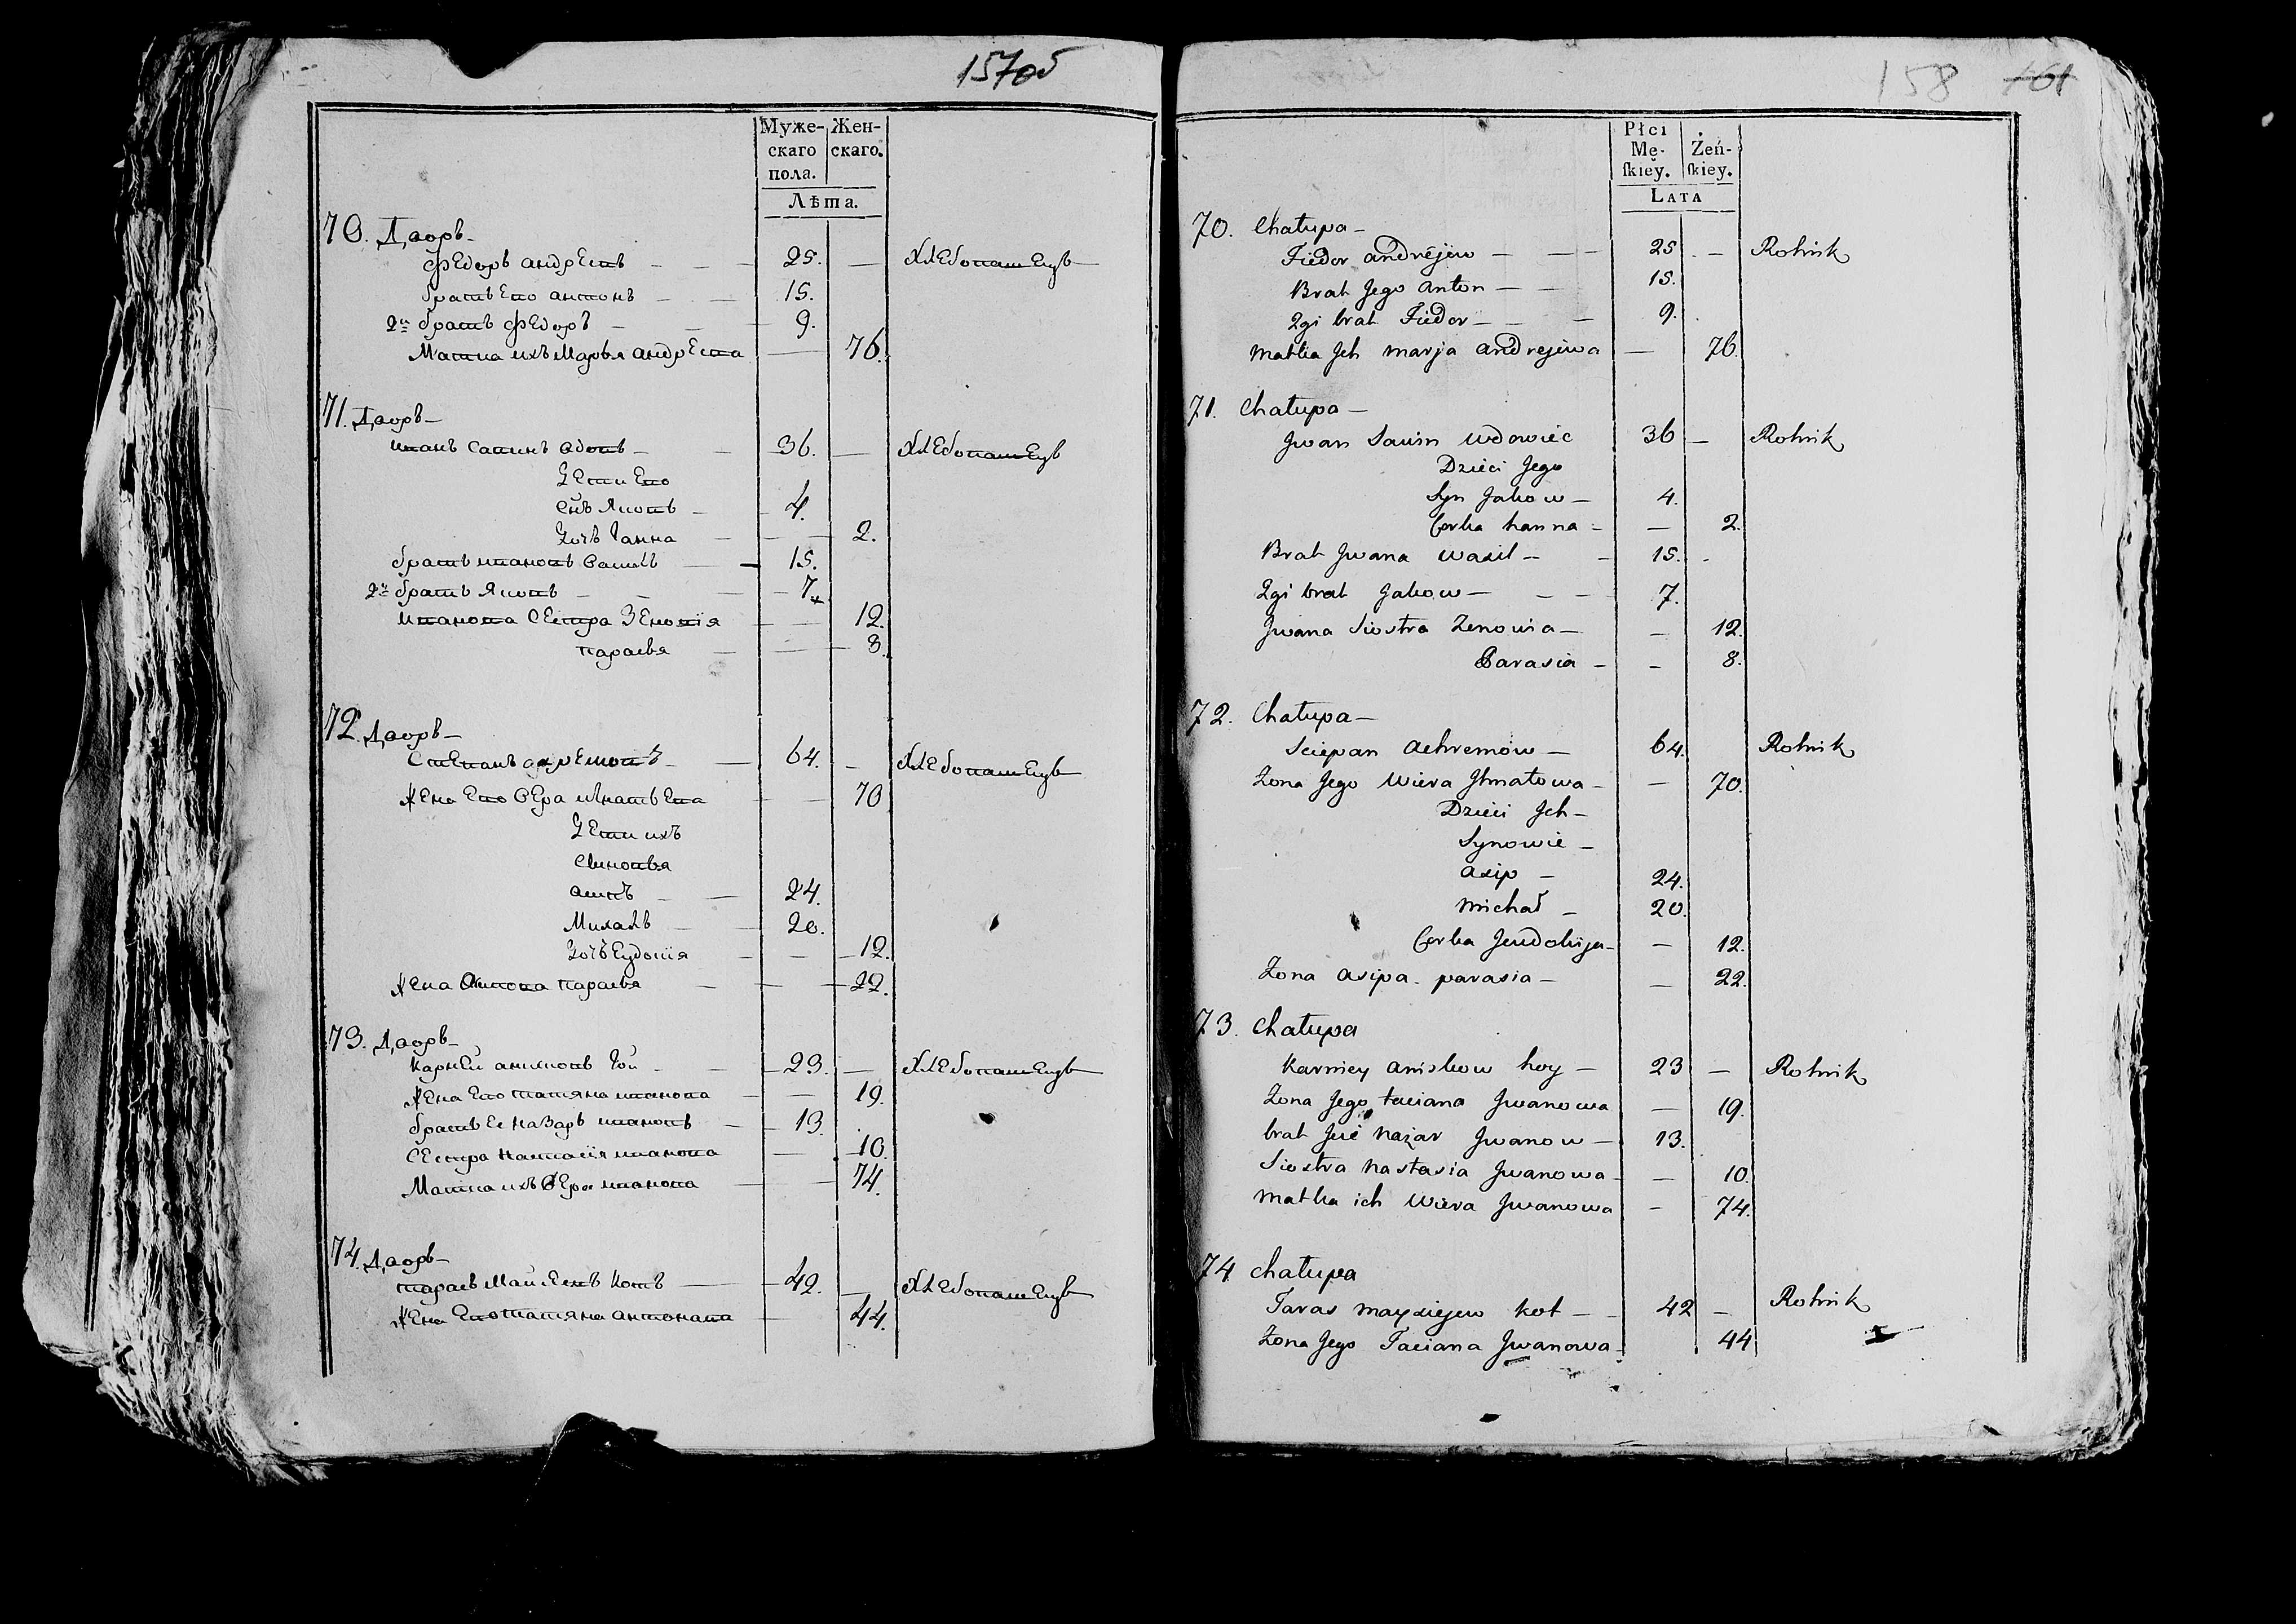 157об
Муже- Жен-
скаго скаго.
пола.
Лѣта.
70. Дворъ
Федоръ андреевъ 25. — Хлебопашецъ
братъ его антонъ 15.
2й братъ Федоръ 9.
Матка ихъ Марья андреева — 76.
71. Дворъ
иванъ Савинъ вдовъ 36. — Хлебопашецъ
Дети его
Сынъ Яковъ 4.
Дочь Ганна — 2.
братъ ивановъ Василь 15.
2й братъ Яковъ 7.
иванова Сестра Зеновія — 12.
Парасья — 8.
72. Дворъ
Степанъ ахремовъ 64. — Хлебопашецъ
Жена его Вера игнатьева — 70
Дети ихъ
Сыновья
асипъ 24.
Михалъ 20.
Дочь Еудокія — 12.
Жена Осипова Парасья — 22.
73. Дворъ
Карней анисковъ Гой 23. — Хлебопашецъ
Жена его татяна иванова — 19.
братъ ее Назаръ ивановъ 13.
Сестра Настасія иванова — 10.
Матка ихъ Вера иванова — 74.
74. Дворъ
тарасъ Майсеевъ Котъ 42. — Хлебопашецъ
Жена его татяна антонава — 44.
158 161
Płci
Mę- Żeń-
skiey. skiey.
LATA
70. Chałupa —
Fiedor andrejew — 25 — Rolnik
Brat Jego anton — 15.
2gi brat Fiedor — 9.
Matka Jch marja andrejewa — 76.
71. Chałupa —
Jwan Sawin wdowiec 36 — Rolnik
Dzieci Jego
Syn Jakow — 4.
Corka hanna — — 2.
Brat Jwana wasil — 15.
2gi brat Jakow — 7.
Jwana Siostra Zenowia — — 12.
Parasia — — 8.
72. Chałupa —
Sciepan achremow — 64. Rolnik
Zona Jego Wiera Jhnatowa — — 70.
Dzieci Jch —
Synowie —
asip — 24.
Michał — 20.
Corka Jeudokija — — 12.
Zona asipa parasia — — 22.
73. Chałupa
Karniey aniskow hoy — 23 — Rolnik
Zona Jego taciana Jwanowa — 19.
brat Jeie nazar Jwanow — 13.
Siostra nastasia Jwanowa — — 10.
matka ich Wiera Jwanowa — 74.
74 Chałupa
Taras maysiejew kot — 42 — Rolnik
Zona Jego Taciana Jwanowa — 44